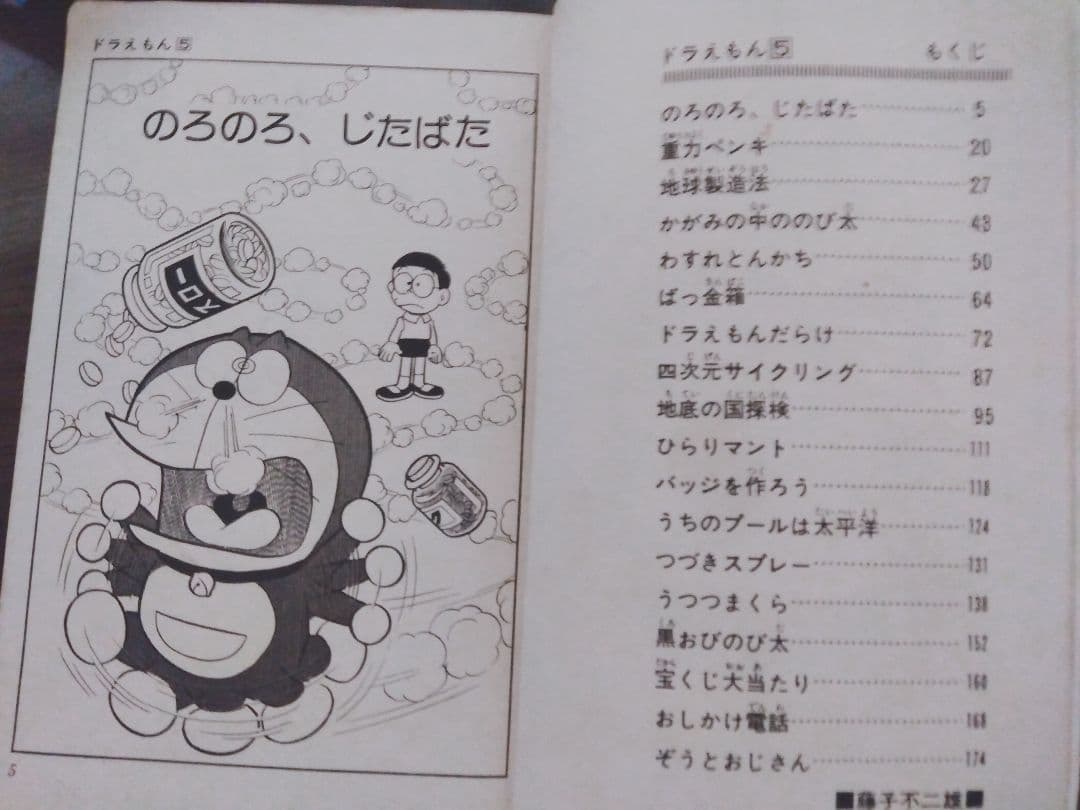 ドラえもん5
のろのろ、じたばた
クロノ
5
ドラえもん5 もくじ
のろのろ、じたばた 5
重力ペンキ 20
地球製造法 27
かがみの中ののび太 43
わすれとんかち 50
ばっ金箱 64
ドラえもんだらけ 72
四次元サイクリング 87
地底の国探検 95
ひらりマント 111
バッジを作ろう 118
うちのプールは太平洋 124
つづきスプレー 131
うつつまくら 138
黒おびのび太 152
宝くじ大当たり 160
おしかけ電話 168
ぞうとおじさん 174
■藤子不二雄■